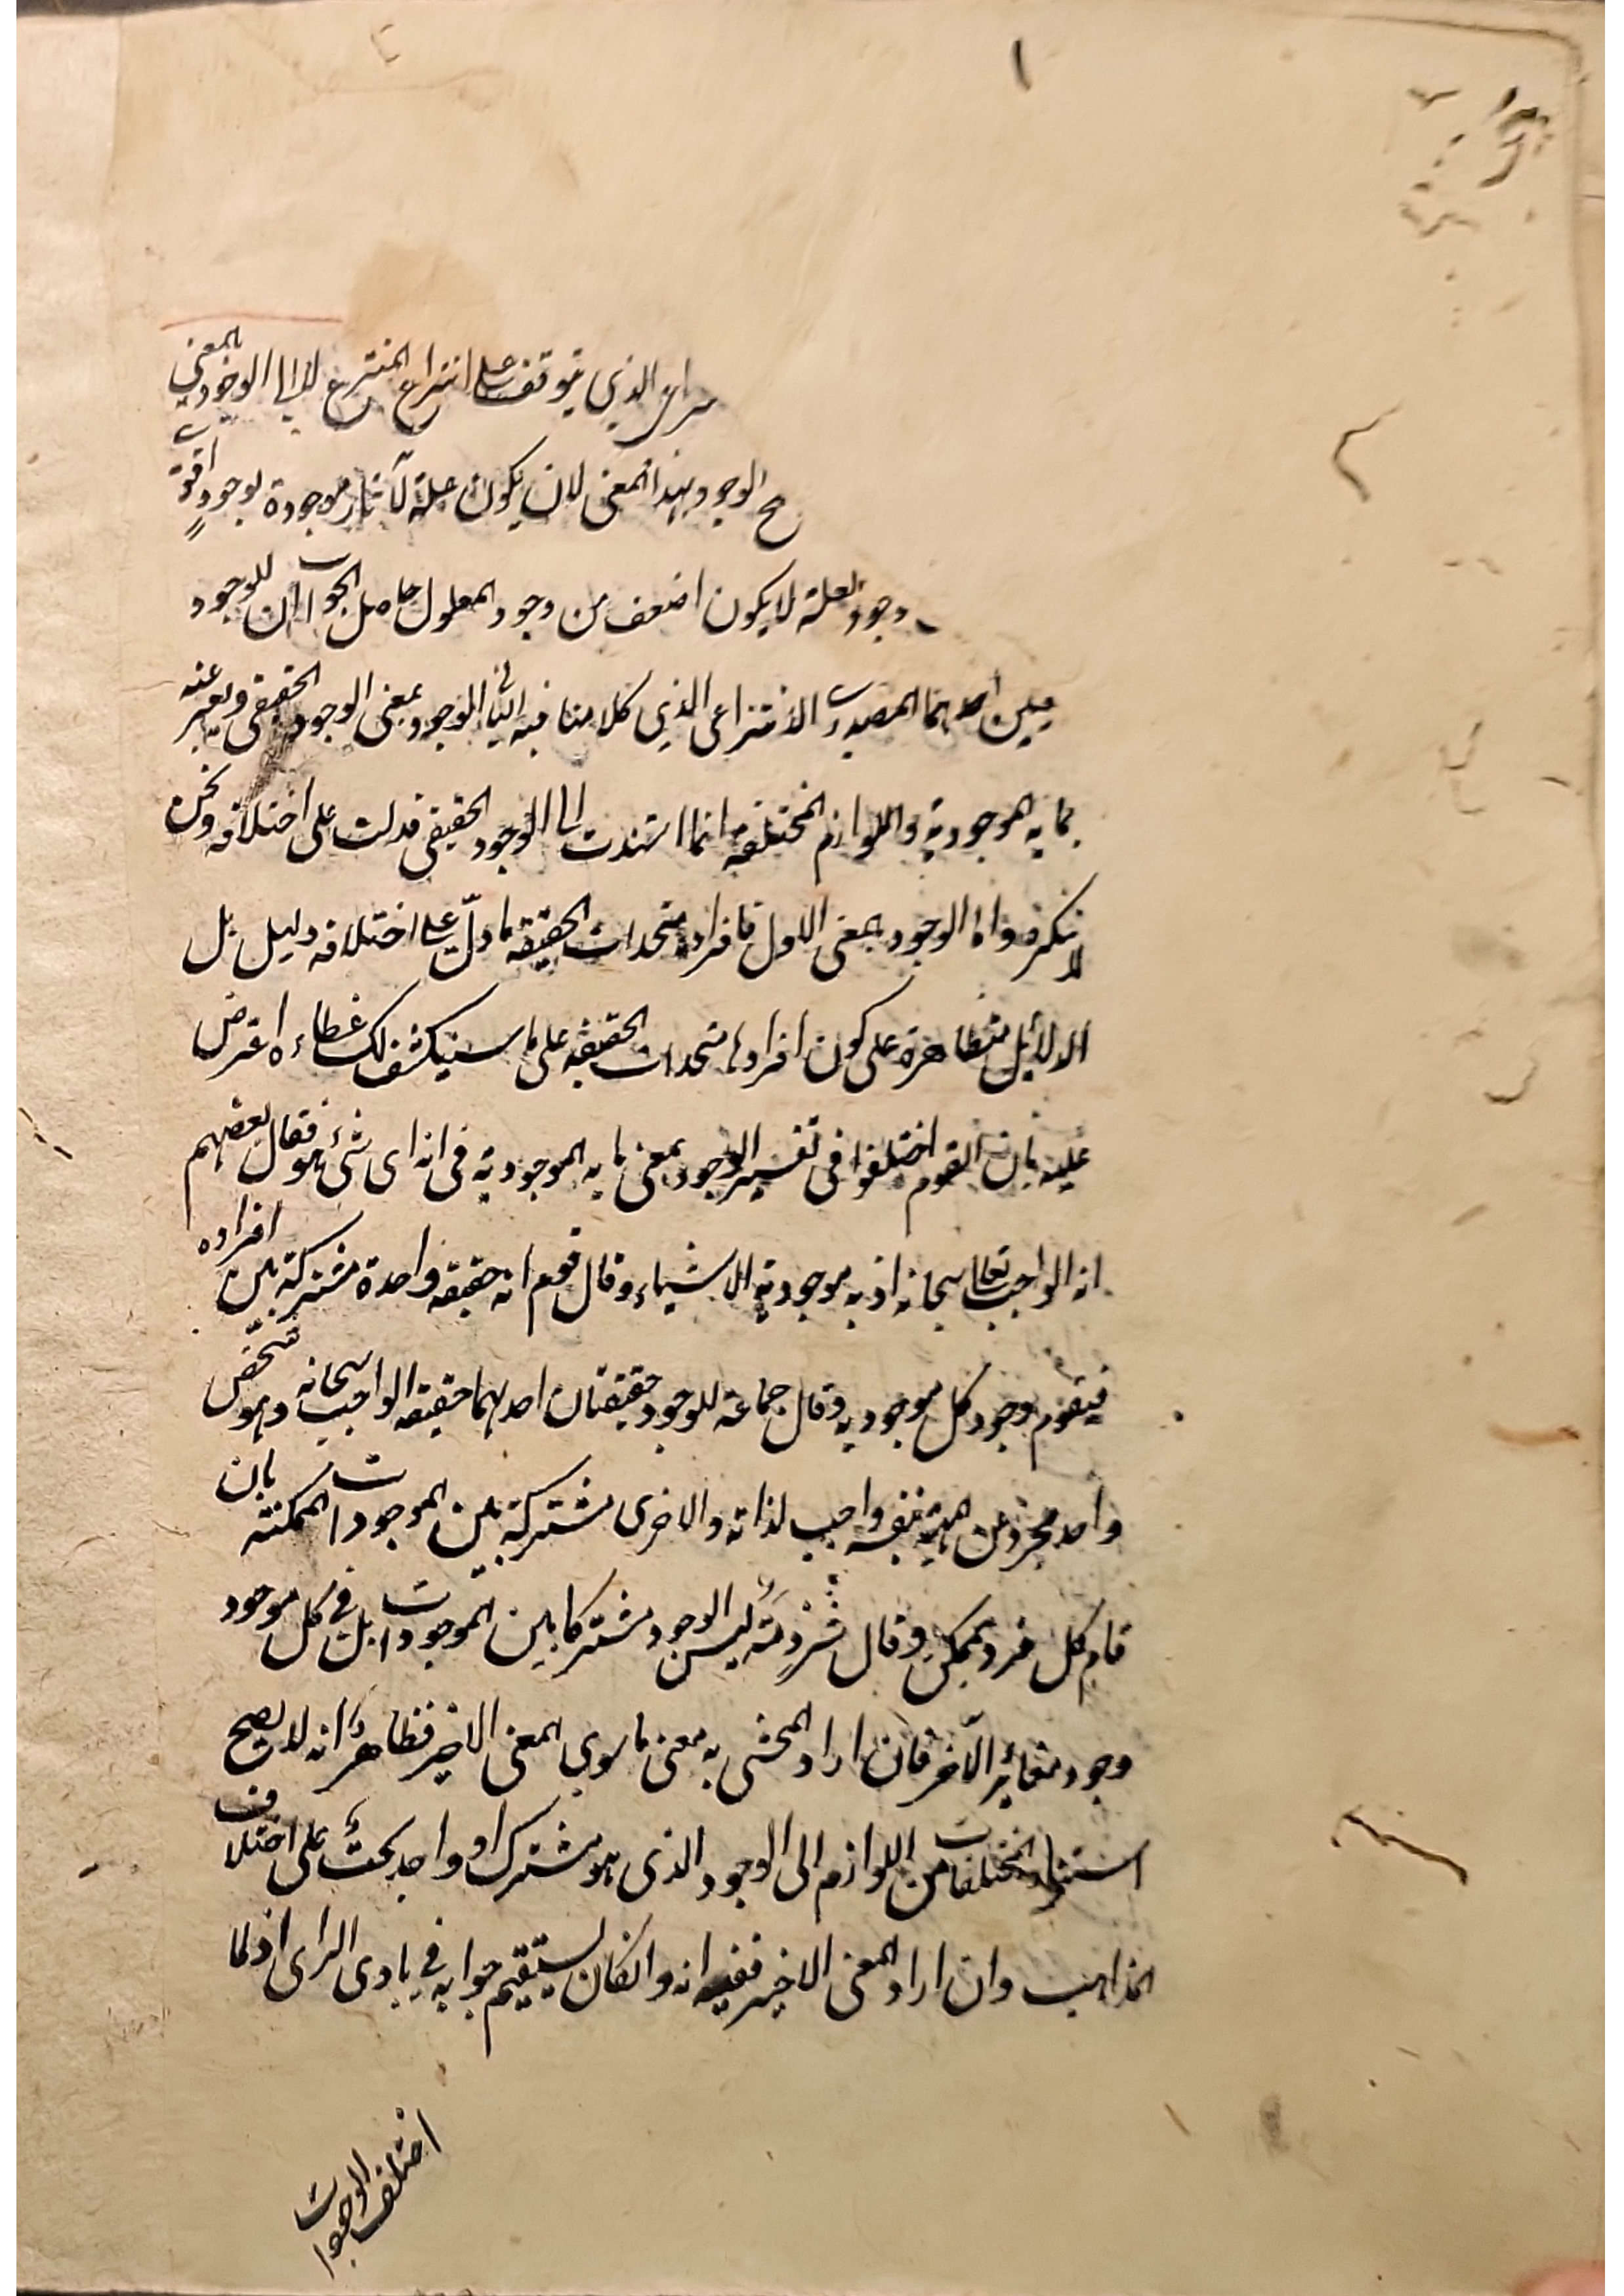 ١
الذي يتوقف على انتزاع المنتزع لا الى الوجود بالمعنى
الوجود بهذا المعنى لان يكون علة لآثار موجودة بوجودات
وجود العلة لا يكون اضعف من وجود المعلول حاصل الجواب ان للوجود
احدهما المصدري الانتزاعي الذي كلامنا فيه الثاني الوجود بمعنى الوجود الحقيقي ويعبر عنه
بما به الموجودية واللوازم المختلفة انما استندت الى الوجود الحقيقي فدلت على اختلافه ونحن
لا ننكره واما الوجود بمعنى الاول فافراده متحدات الحقيقة ما دلّ على اختلافه دليل بل
الدلائل متظاهرة على كون افراده متحدات الحقيقة على ما سنكشف لك غطاءه اعترض
عليه بان القوم اختلفوا في تفسير الوجود بمعنى ما به الموجودية في انه اى شئ هو فقال بعضهم
انه الواجب تعالى سبحانه اذ به موجودية الاشياء وقال قوم انه حقيقة واحدة مشتركة بين افراده
فيقوم وجود كل موجود به وقال جماعة للوجود حقيقتان احدهما حقيقة الواجب سبحانه وهو شخص
واحد مجرد عن المهية بنفسه واجب لذاته والاخرى مشتركة بين الموجودات الممكنة بان
قام كل فرد بممكن وقال شرذمة ليس الوجود مشتركا بين الموجودات بل في كل موجود
وجود مغائر الآخر فان اراد المحشى به معنى ما سوى المعنى الاخير فظاهر انه لا يصح
استناد المختلفات من اللوازم الى الوجود الذى هو مشترك او واحد بحت على اختلاف
المذاهب وان اراد المعنى الاخير ففيه انه وان كان يستقيم جوابه في بادى الراى اذ لما
اختلف الوجودات